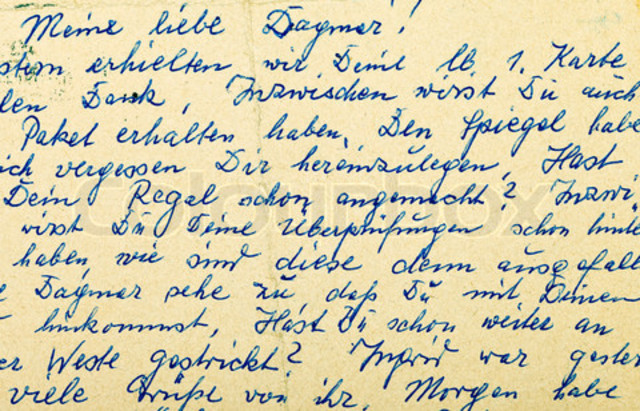 Meine liebe Dagmar!
stern erhielten wir Deine lb. 1. Karte
len Dank, Inzwischen wirst Du auch
Paket erhalten haben, Den Spiegel habe
ich vergessen Dir hereinzulegen, Hast
Dein Regal schon angemacht? Inzwi
wirst Du Deine Überprüfungen schon hinte
haben, wie sind diese denn ausgefall
e Dagmar sehe zu daß Du mit Deinen
hinkommst, Hast Du schon weiter an
er Weste gestrickt? Ingrid war gester
viele Grüße von ihr, Morgen habe